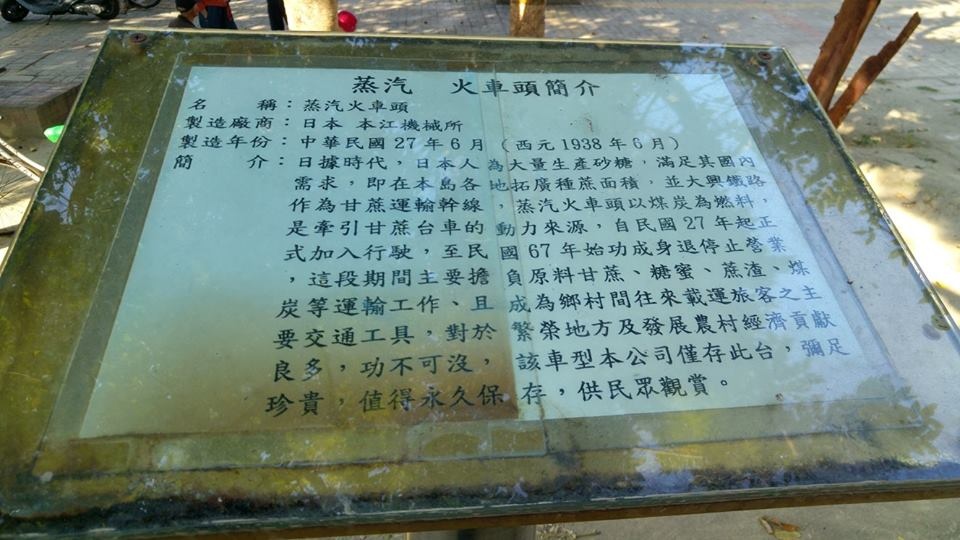 蒸汽 火車頭簡介
名 稱：蒸汽火車頭
製造廠商：日本 本江機械所
製造年份：中華民國27年6月（西元1938年6月）
簡 介：日據時代，日本人為大量生產砂糖，滿足其國內
需求，即在本島各地拓廣種蔗面積，並大興鐵路
作為甘蔗運輸幹線，蒸汽火車頭以煤炭為燃料，
是牽引甘蔗台車的動力來源，自民國27年起正
式加入行駛，至民國67年始功成身退停止營業
，這段期間主要擔負原料甘蔗、糖蜜、蔗渣、煤
炭等運輸工作、且成為鄉村間往來載運旅客之主
要交通工具，對於繁榮地方及發展農村經濟貢獻
良多，功不可沒，該車型本公司僅存此台，彌足
珍貴，值得永久保存，供民眾觀賞。